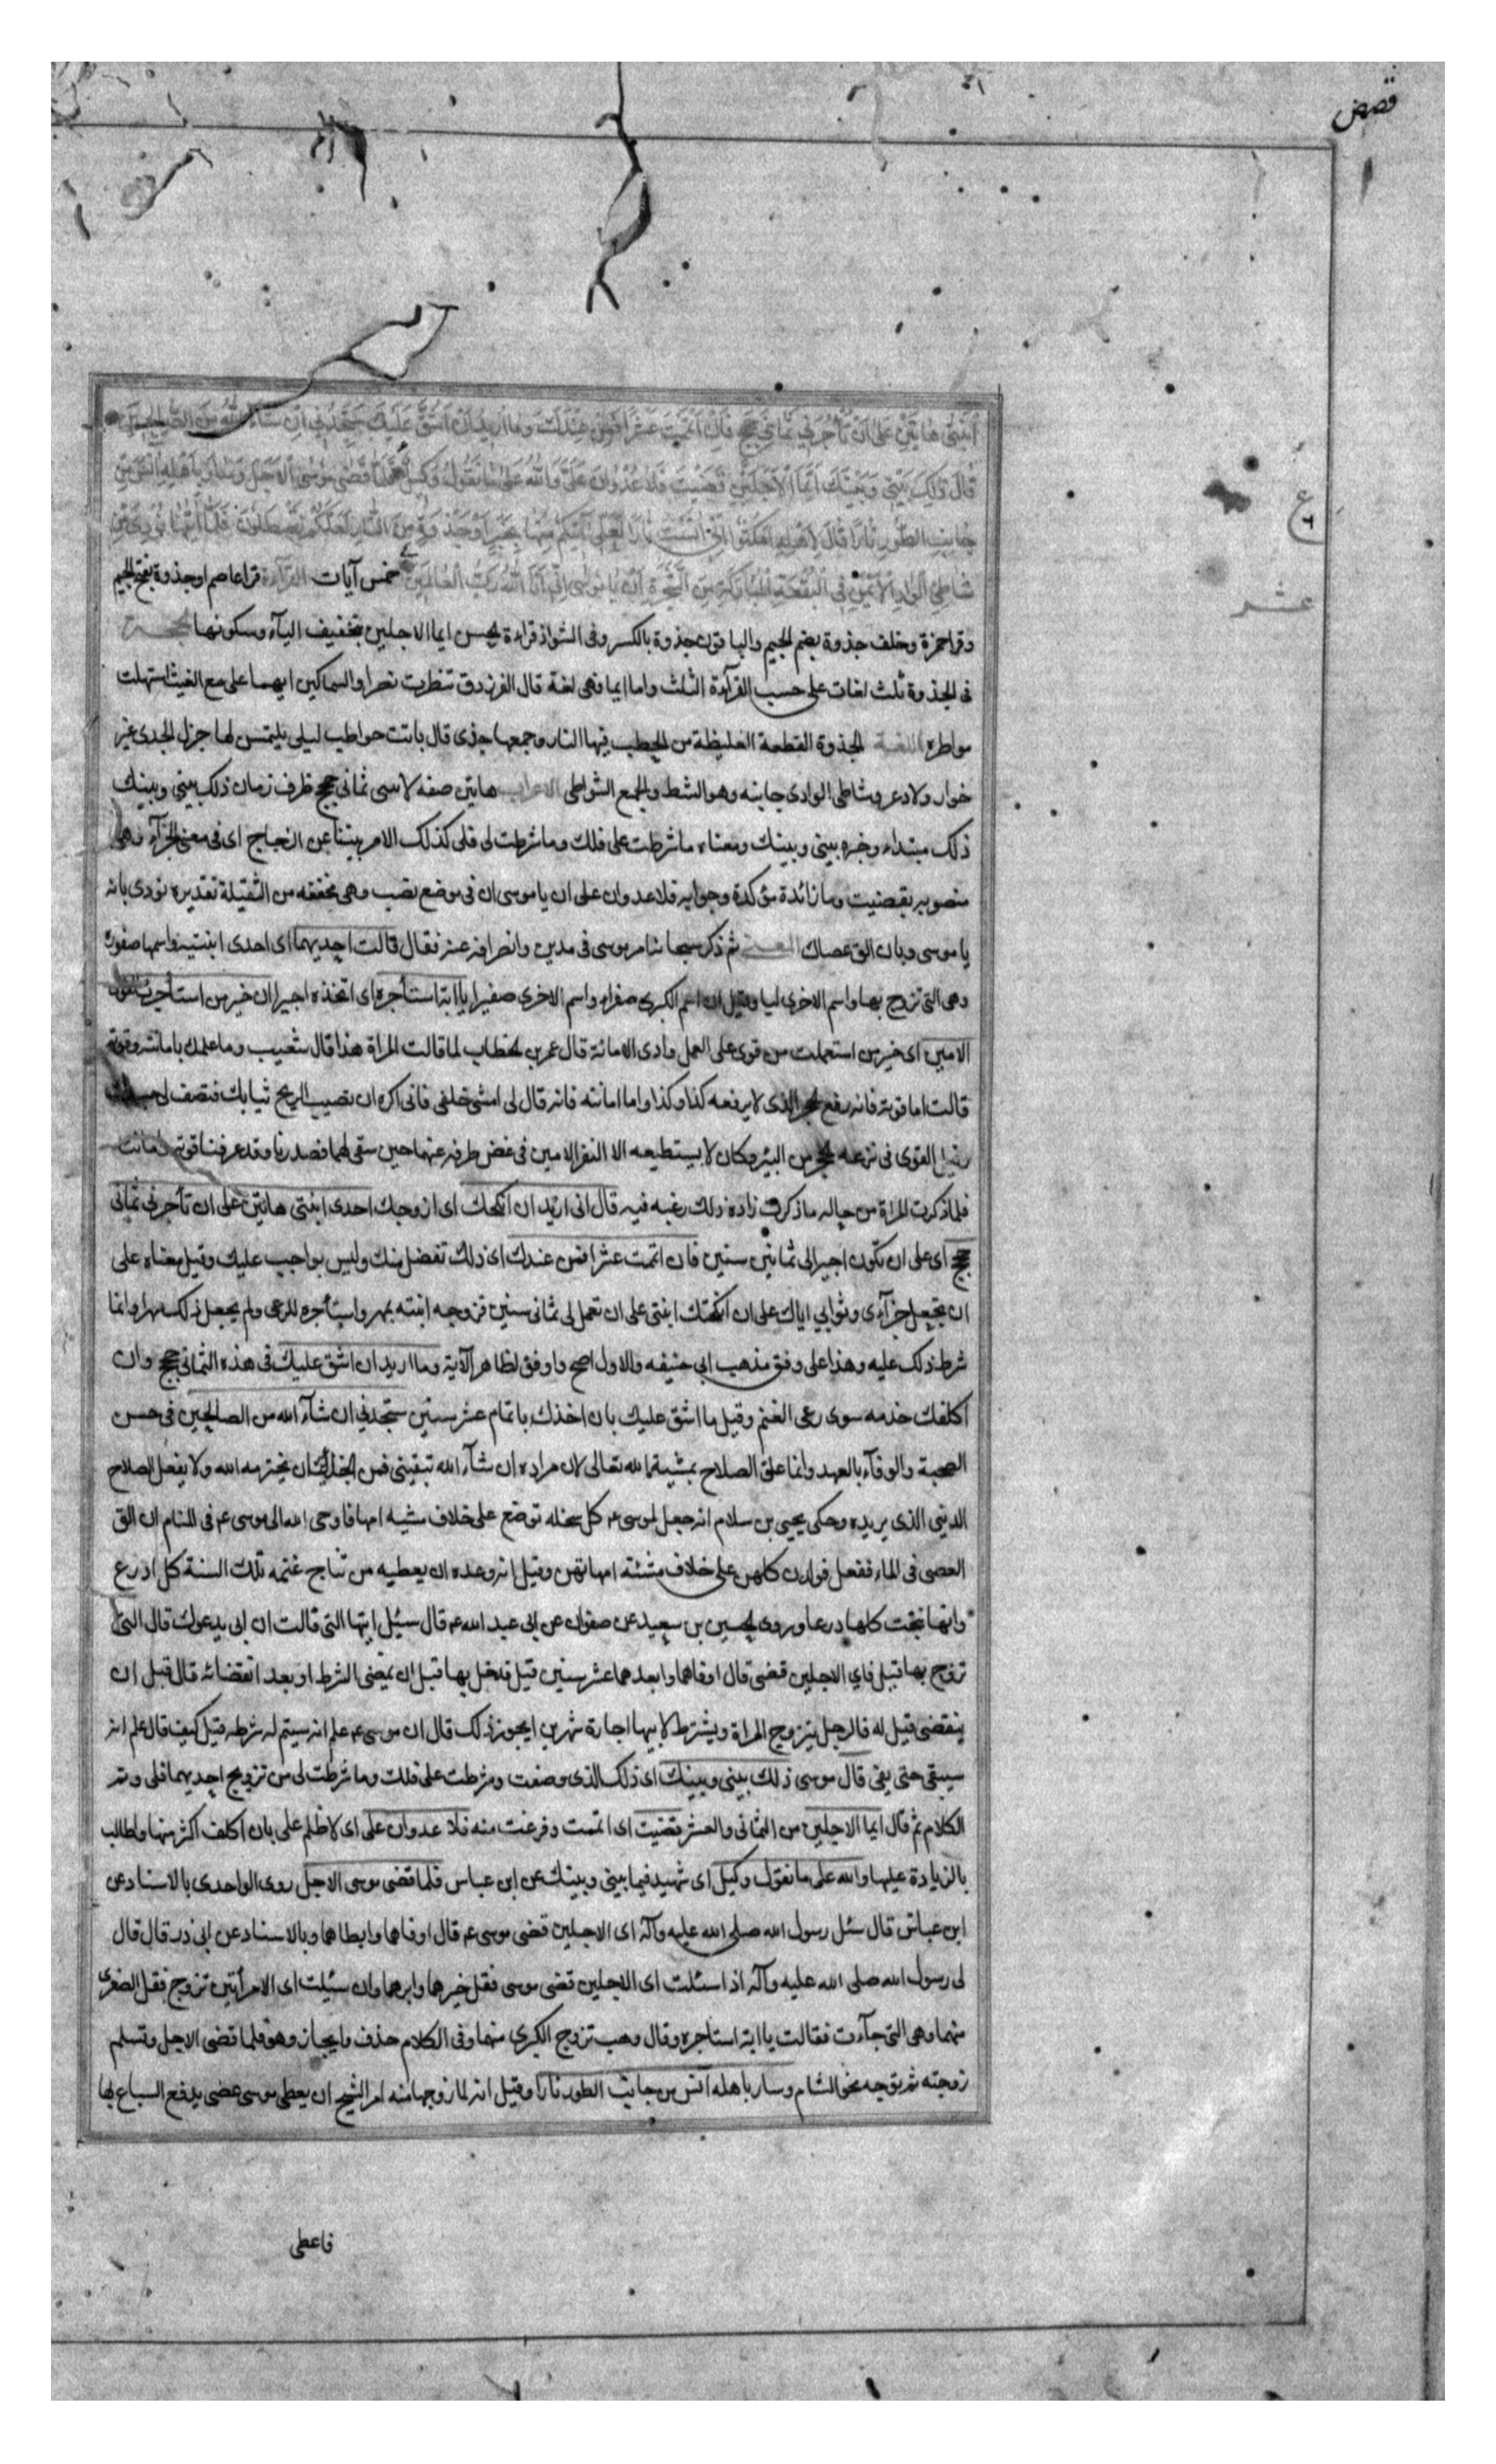 قصص
ابنتي هاتين على ان تأجرني ثماني حجج فان اتممت عشرا فمن عندك وما اريد ان اشق عليك ستجدني ان شاء الله من الصالحين
قال ذلك بيني وبينك ايما الاجلين قضيت فلا عدوان علي والله على ما نقول وكيل فلما قضى موسى الاجل وسار باهله انس من
جانب الطور نارا قال لاهله امكثوا اني انست نارا لعلي آتيكم منها بخبر او جذوة من النار لعلكم تصطلون فلما اتيها نودي من
شاطئ الواد الايمن في البقعة المباركة من الشجرة ان يا موسى اني انا الله رب العالمين خمس آيات القرآءة قرا عاصم او جذوة بفتح الجيم
وقرا حمزة وخلف جذوة بضم الجيم والباقون جذوة بالكسر وفى الشواذ قراءة الحسن ايما الاجلين بتخفيف اليآء وسكونها الحجة
فى الجذوة ثلث لغات على حسب القرآءة الثلث واما ايما فهى لغة قال الفرزدق تنظرت نصرا والسماكين ايهما على مع الغيث استهلت
مواطره اللغة الجذوة القطعة الغليظة من الحطب فيها النار وجمعها جذى قال باتت حواطب ليلى يلتمسن لها جزل الجذى غير
خوار ولا دعر وشاطى الوادى جانبه وهو الشط والجمع الشواطى الاعراب هاتين صفه لابنتى ثمانى حجج ظرف زمان ذلك بينى وبينك
ذلك مبتداء وخبره بينى وبينك ومعناه ما شرطت على فلك وما شرطت لى فلى كذلك الامر بيننا عن الزجاج اى فى معنى الجزآء وهى
منصوبه بقضيت وما زائدة مؤكدة وجوابه فلا عدوان على ان يا موسى ان فى موضع نصب وهى مخففه من الثقيلة تقديره نودى بانه
يا موسى وبان الق عصاك المعنى ثم ذكر سبحانه امر موسى فى مدين وانصرافه عنه فقال قالت احديهما اى احدى ابنتيه واسمها صفوره
وهى التى تزوج بها واسم الاخرى ليا وقيل ان اسم الكبرى صفراء واسم الاخرى صفيرا يا ابة استأجره اى اتخذه اجيرا ان خير من استأجرت القوى
الامين اى خير من استعملت من قوى على العمل وادى الامانة قال عمر بن الخطاب لما قالت المراة هذا قال شعيب وما علمك بامانته وقوته
قالت اما قوته فانه رفع الحجر الذى لا يرفعه كذا وكذا واما امانته فانه قال لى امشى خلفى فانى اكره ان تصيب الريح ثيابك فتصف لى جسدك
وقيل القوى فى نزعه الحجر من البئر وكان لا يستطيعه الا النفر الامين فى غض طرفه عنهما حين سقى لهما فصدرنا وقد عرفنا قوته وامانته
فلما ذكرت المراة من حاله ما ذكرت زاده ذلك رغبه فيه قال انى اريد ان انكحك اى ازوجك احدى ابنتى هاتين على ان تأجرنى ثمانى
حجج اى على ان تكون اجيرا لى ثمانين سنين فان اتممت عشرا فمن عندك اى ذلك تفضل منك وليس بواجب عليك وقيل معناه على
ان تجعل جزآءى وثوابى اياك على ان انكحتك ابنتى على ان تعمل لى ثمانى سنين فزوجه ابنته بمهر واستأجره للرعى ولم يجعل ذلك مهرا وانما
شرط ذلك عليه وهذا على وفق مذهب ابى حنيفه والاول اصح واوفق لظاهر الآية وما اريد ان اشق عليك فى هذه الثمانى حجج وان
اكلفك خدمه سوى رعى الغنم وقيل ما اشق عليك بان اخذك باتمام عشر سنين ستجدنى ان شآء الله من الصالحين فى حسن
الصحبة والوفآء بالعهد وانما علق الصلاح بمشية الله تعالى لان مراده ان شآء الله تبقيتى فمن الجائز ان يخترمه الله ولا يفعل الصلاح
الدينى الذى يريده وحكى يحيى بن سلام انه جعل لموسى ع كل سخله توضع على خلاف شيه امها فاوحى الله الى موسى ع فى المنام ان الق
العصى فى الماء ففعل فولدن كلهن على خلاف شئة امهاتهن وقيل انه وعده ان يعطيه من نتاج غنمه تلك السنة كل ادرع
وانها نتجت كلها درعا وروى الحسين بن سعيد عن صفوان عن ابى عبد الله ع قال سئل ايتها التى قالت ان ابى يدعوك قال التى
تزوج بها قيل فاى الاجلين قضى قال اوفاهما وابعدهما عشر سنين قيل فدخل بها قبل ان يمضى الشرط او بعد انقضائه قال قبل ان
ينقضى قيل له فالرجل يتزوج المراة ويشترط لابيها اجارة شهرين ايجوز ذلك قال ان موسى ع علم انه سيتم له شرطه قيل كيف قال علم انه
سيبقى حتى يفى قال موسى ذلك بينى وبينك اى ذلك الذى وصفت وشرطت على فلك وما شرطت لى من تزويج احديهما فلى وتم
الكلام ثم قال ايما الاجلين من الثمانى والعشر قضيت اى اتممت وفرغت منه فلا عدوان على اى لا ظلم على بان اكلف اكثر منها واطالب
بالزيادة عليها والله على ما نقول وكيل اى شهيد فيما بينى وبينك عن ابن عباس فلما قضى موسى الاجل روى الواحدى بالاسناد عن
ابن عباس قال سئل رسول الله صلى الله عليه وآله اى الاجلين قضى موسى ع قال اوفاهما وابطاهما وبالاسناد عن ابى ذر قال قال
لى رسول الله صلى الله عليه وآله اذا سئلت اى الاجلين قضى موسى فقل خيرهما وابرهما وان سئلت اى الامرأتين تزوج فقل الصغرى
منهما وهى التى جآءت فقالت يا ابة استاجره وقال وهب تزوج الكبرى منهما وفى الكلام حذف وايجاز وهو فلما قضى الاجل وتسلم
زوجته ثم توجه نحو الشام وسار باهله آنس من جانب الطور نارا وقيل انه لما زوجها منه امر الشيخ ان يعطى موسى عصى يدفع السباع بها
فاعطى
ع
٦
عشر